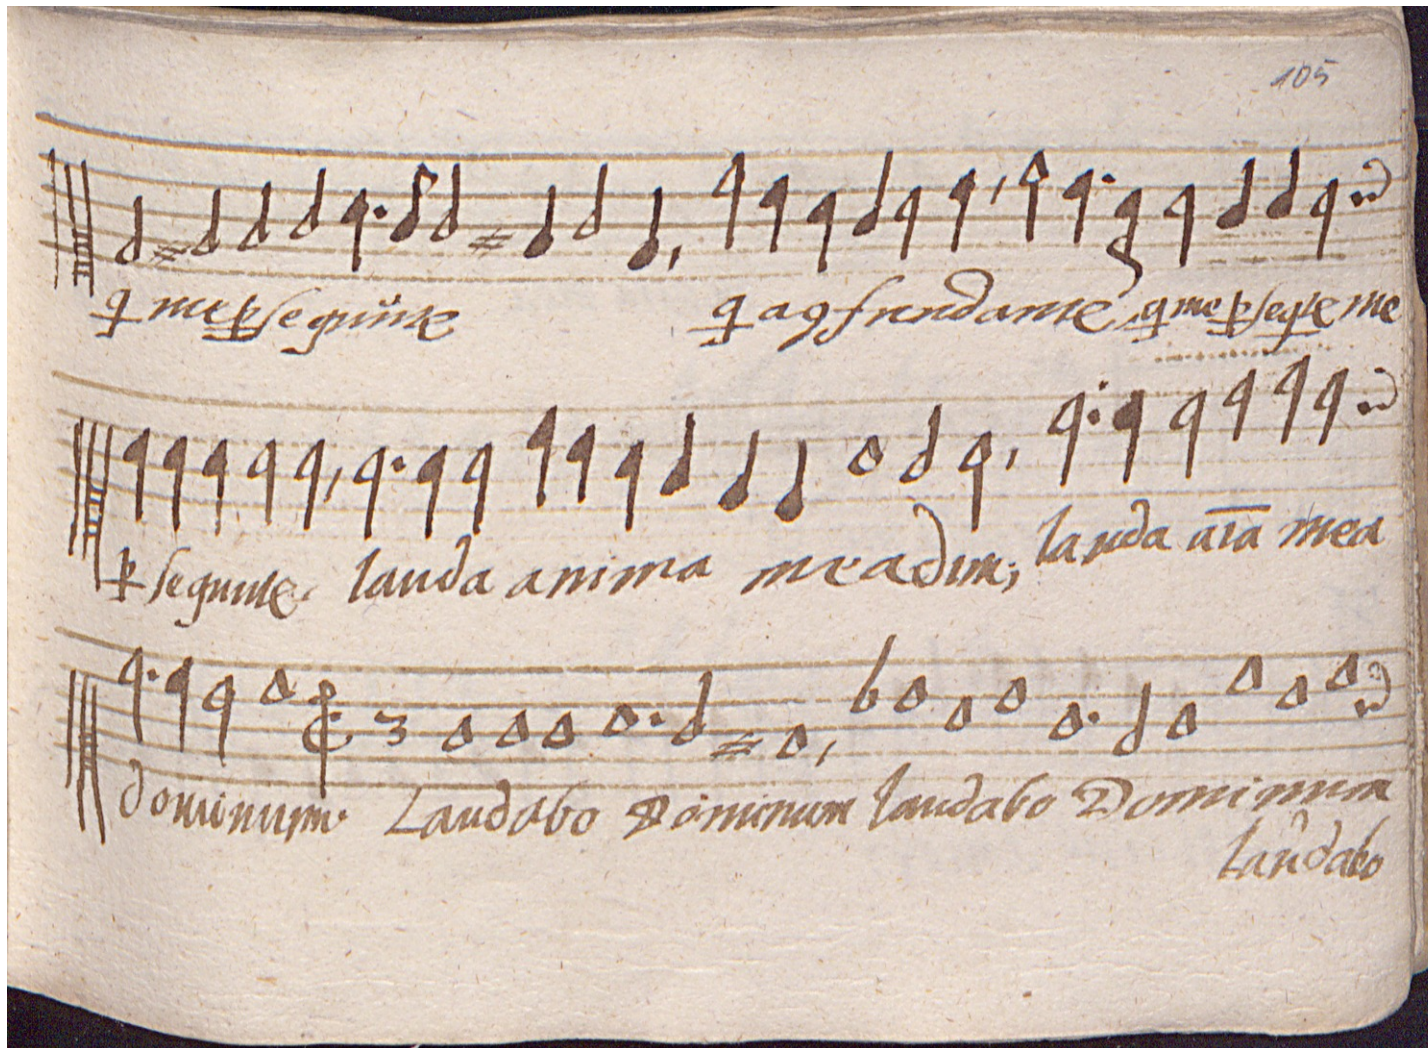 105
q me p̱seguūte q agfundante, q me p̱seqṯe me
p̱seguute. lauda anima mea dm̄; lauda aīa mea
3
dominum. Laudabo Dominum laudabo Dominum
laudabo